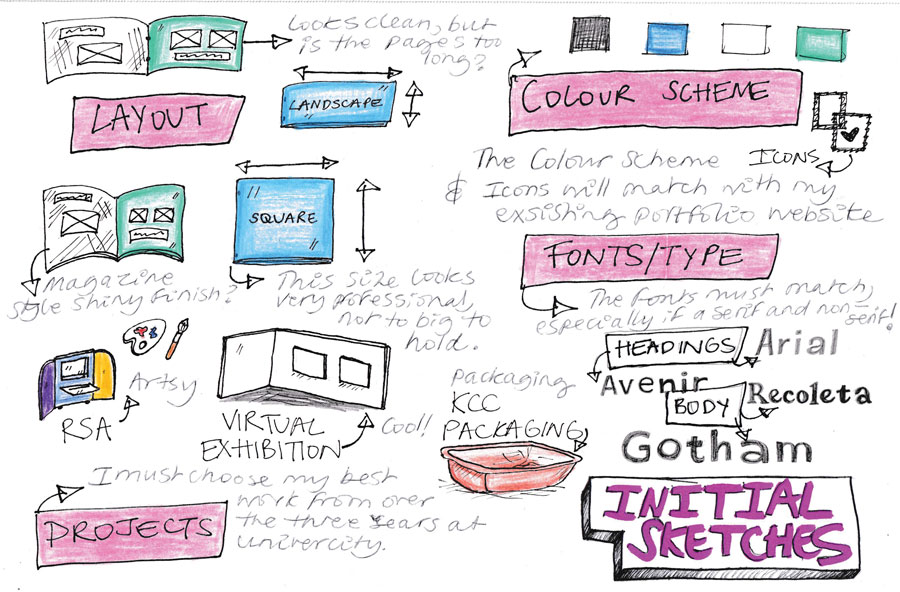 Looks clean, but
is the pages too
long?
LAYOUT
LANDSCAPE
SQUARE
Magazine
style shiny finish?
This size looks
very professional,
not to big to
hold.
RSA
Artsy
VIRTUAL
EXHIBITION
Cool!
Packaging
KCC
PACKAGING
PROJECTS
I must choose my best
work from over
the three years at
univercity.
COLOUR SCHEME
ICONS
The Colour Scheme
& Icons will match with my
exsishing portfolio website
FONTS/TYPE
The fonts must match,
especially if a serif and non-
serif!
HEADINGS
Arial
Avenir
BODY
Recoleta
Gotham
INITIAL
SKETCHES